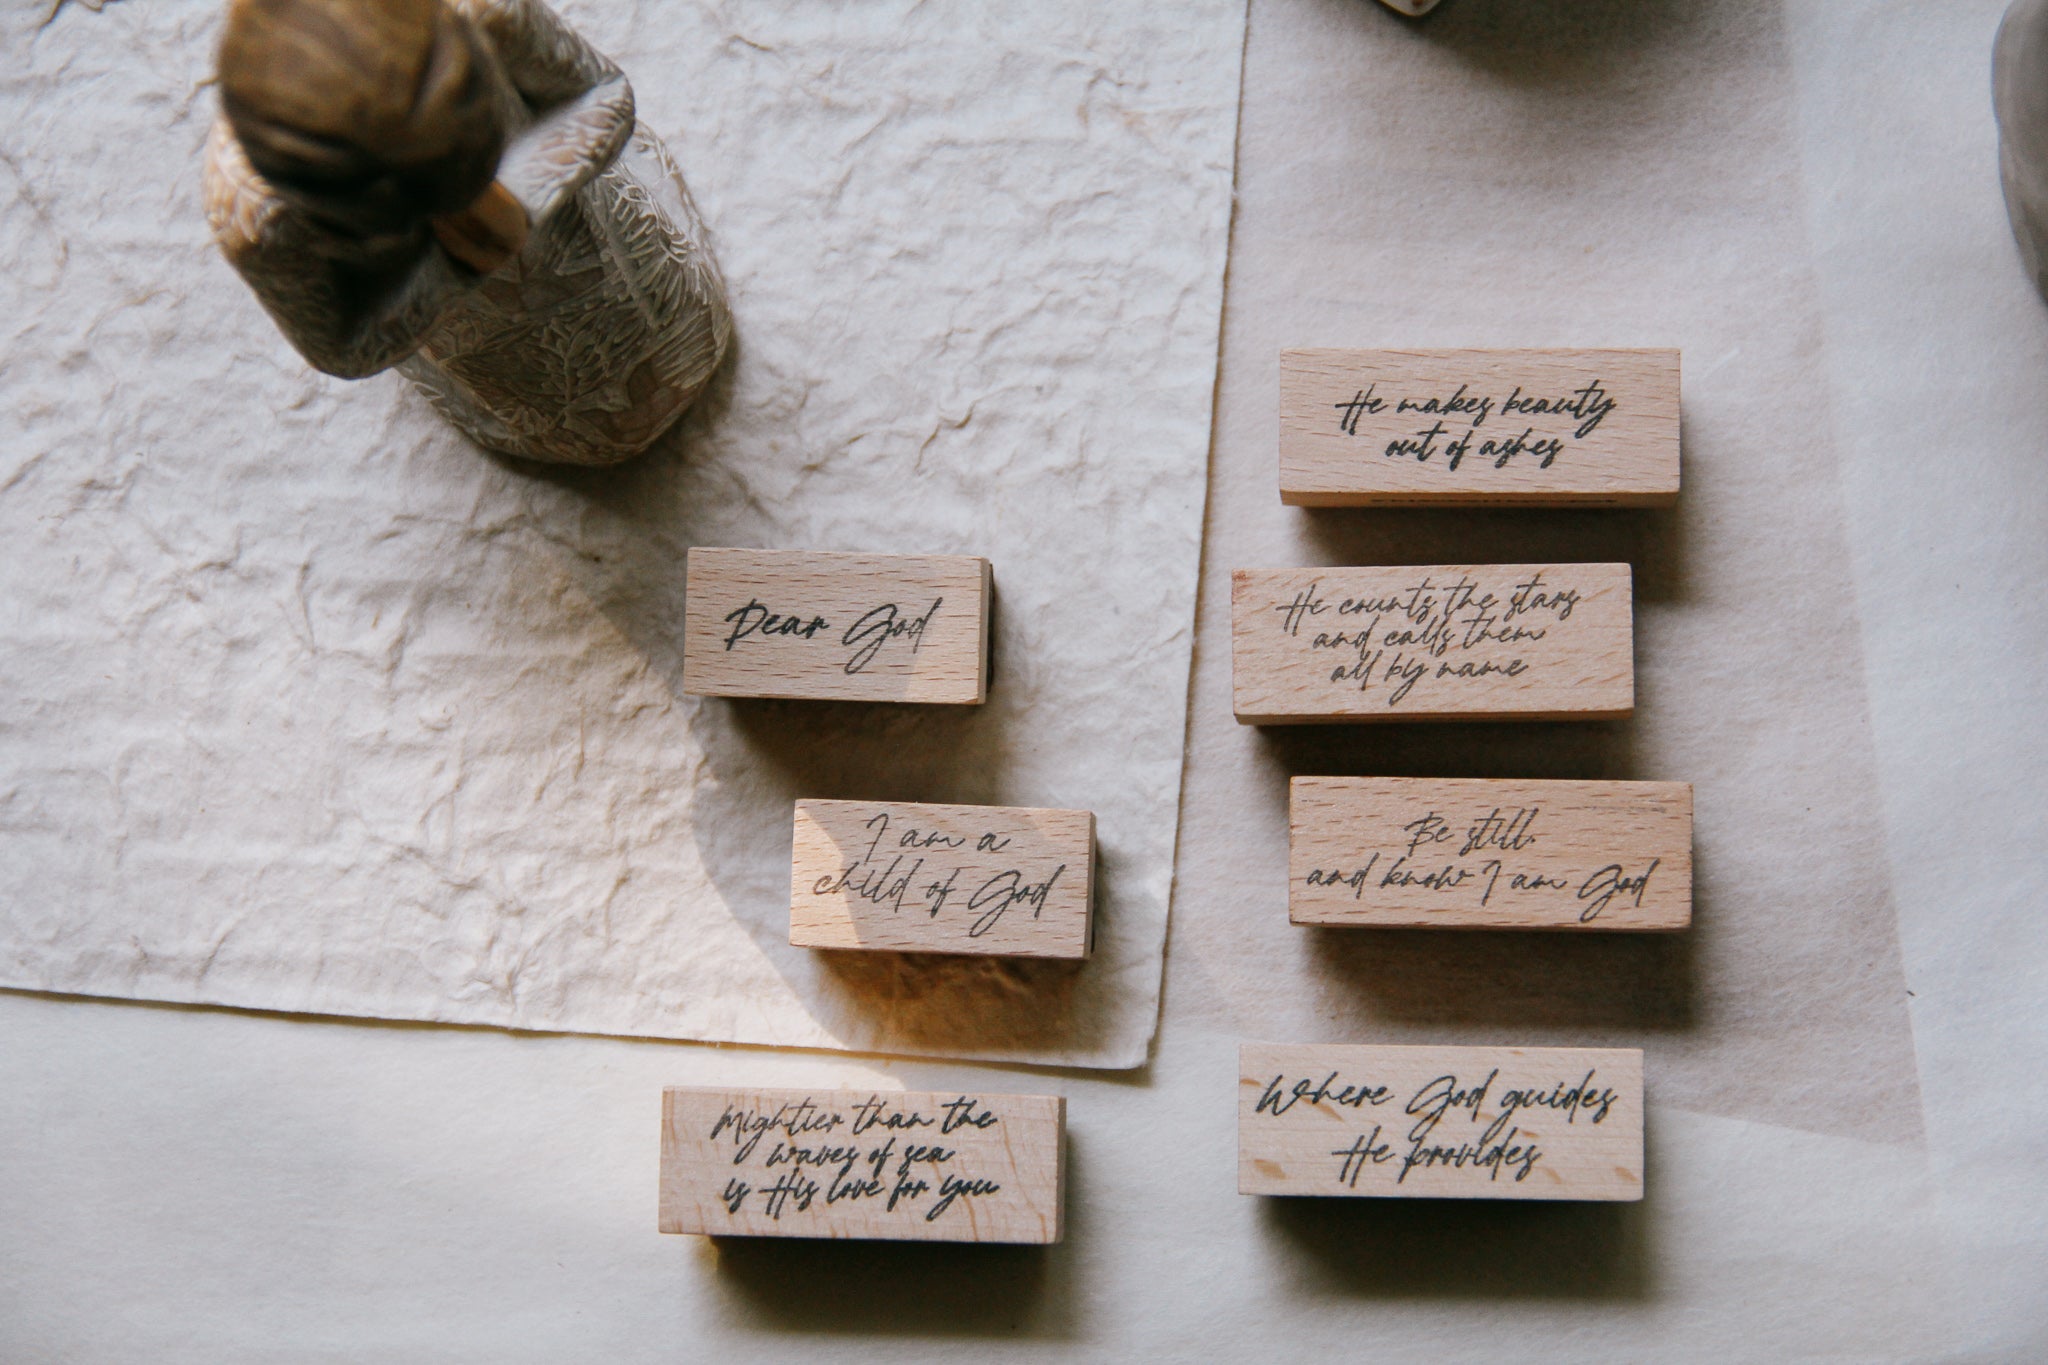 Dear God
I am a
child of God
Mightier than the
waves of sea
is His love for you
He makes beauty
out of ashes
He counts the stars
and calls them
all by name
Be still.
and know I am God
Where God guides
He provides